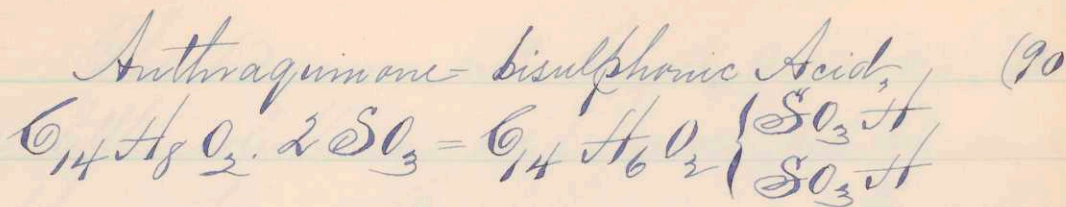 Anthraquinone-bisulphonic Acid, (90
C₁₄H₈O₂. 2SO₃ = C₁₄H₆O₂ { SO₃H
{ SO₃H